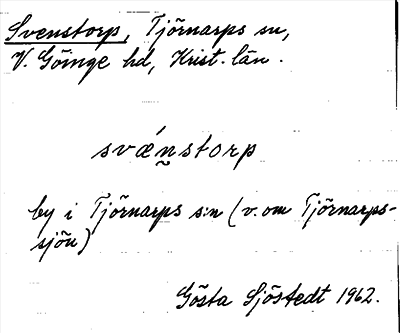 Svenstorp, Tjörnarps sn,
V. Göinge hd, Krist. län.
svǽn̰storp
by i Tjörnarps s:n (v. om Tjörnarps-
sjön)
Gösta Sjöstedt 1962.